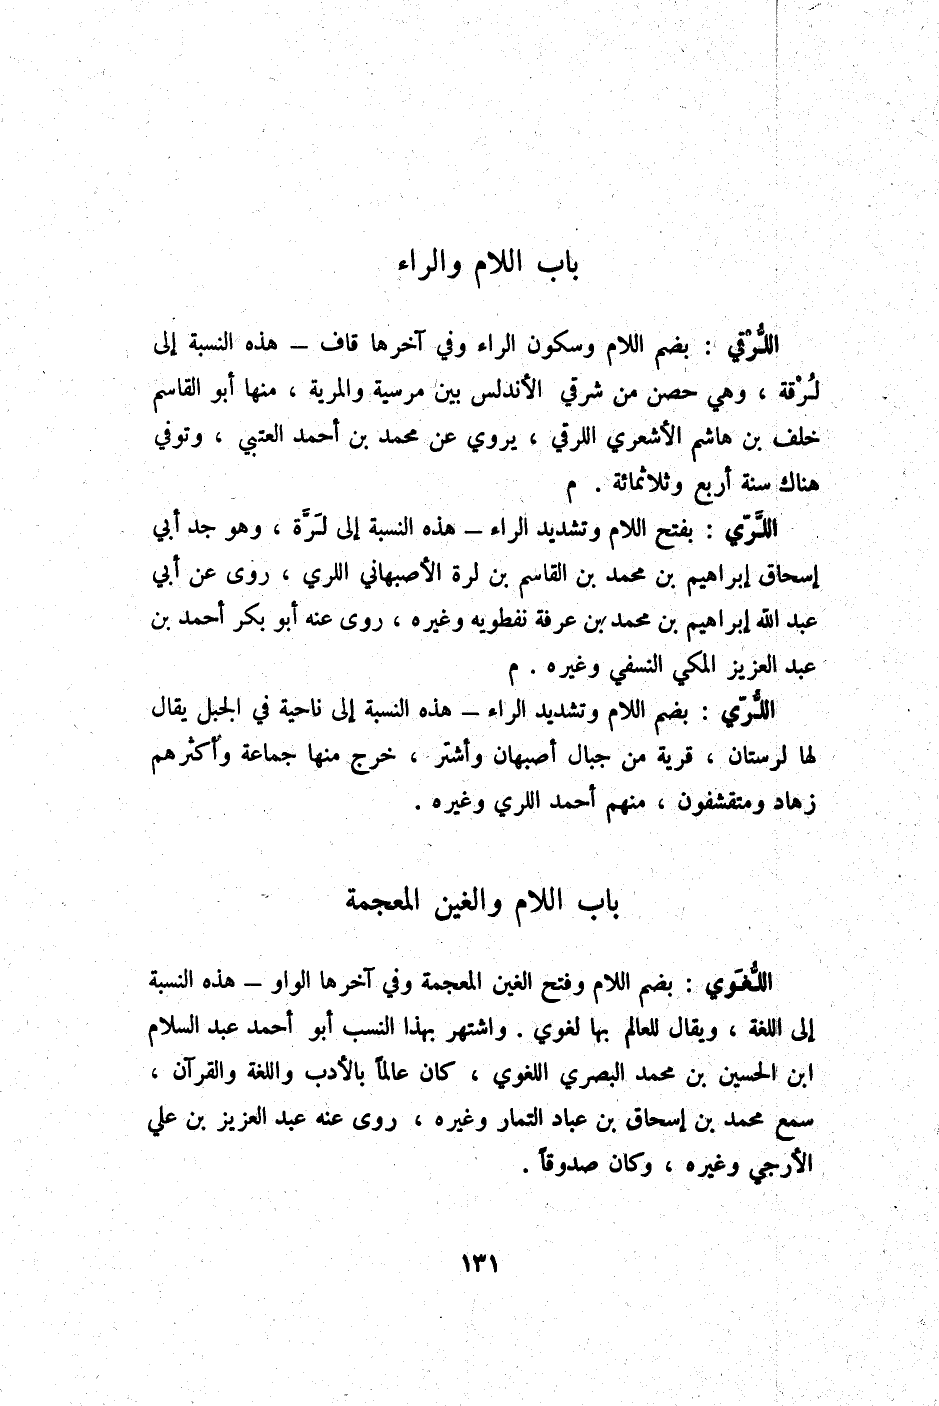 باب اللام والراء
اللُّرْقي : بضم اللام وسكون الراء وفي آخرها قاف – هذه النسبة إلى
لُرْقة ، وهي حصن من شرقي الأندلس بين مرسية والمرية ، منها أبو القاسم
خلف بن هاشم الأشعري اللرقي ، يروي عن محمد بن أحمد العتبي ، وتوفي
هناك سنة أربع وثلاثمائة . م
اللَّرّي : بفتح اللام وتشديد الراء – هذه النسبة إلى لَرَّة ، وهو جد أبي
إسحاق إبراهيم بن محمد بن القاسم بن لرة الأصبهاني اللري ، روى عن أبي
عبد الله إبراهيم بن محمد بن عرفة نفطويه وغيره ، روى عنه أبو بكر أحمد بن
عبد العزيز المكي النسفي وغيره . م
اللُّرّي : بضم اللام وتشديد الراء – هذه النسبة إلى ناحية في الجبل يقال
لها لرستان ، قرية من جبال أصبهان وأشتر ، خرج منها جماعة وأكثرهم
زهاد ومتقشفون ، منهم أحمد اللري وغيره .
باب اللام والغين المعجمة
اللُّغَوي : بضم اللام وفتح الغين المعجمة وفي آخرها الواو – هذه النسبة
إلى اللغة ، ويقال للعالم بها لغوي . واشتهر بهذا النسب أبو أحمد عبد السلام
ابن الحسين بن محمد البصري اللغوي ، كان عالماً بالأدب واللغة والقرآن ،
سمع محمد بن إسحاق بن عباد التمار وغيره ، روى عنه عبد العزيز بن علي
الأرجي وغيره ، وكان صدوقاً .
١٣١